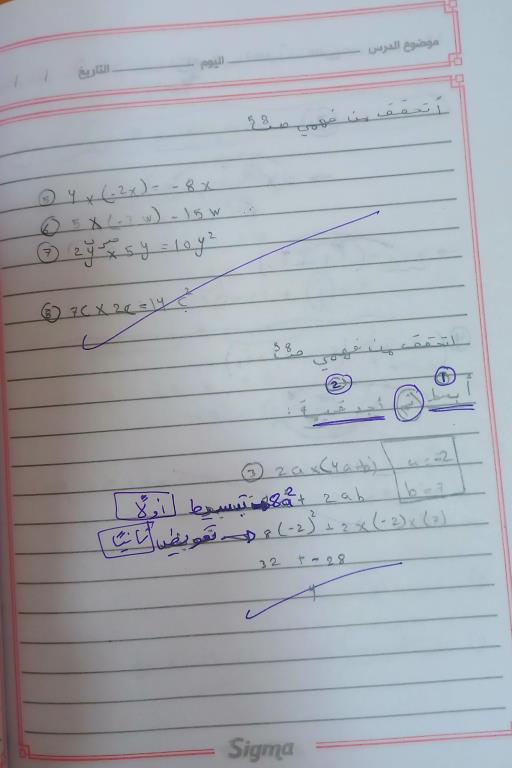 موضوع الدرس اليوم التاريخ / /
أتحقق من فهمي ص58
⑤ 4 x (-2x) = -8x
⑥ 5 x (-3w) - 15w
⑦ 2y x 5y = 10y²
⑧ 7c x 2c = 14c²
اتحقق من فهمي ص58
① ②
أبسط ثم أجد قيمة :
③ 2a x (4a+b) a = -2
أولًا تبسيط 8a² + 2ab b = 7
ثانيًا تعويض 8(-2)² + 2 x (-2) x (7)
32 + -28
4
Sigma